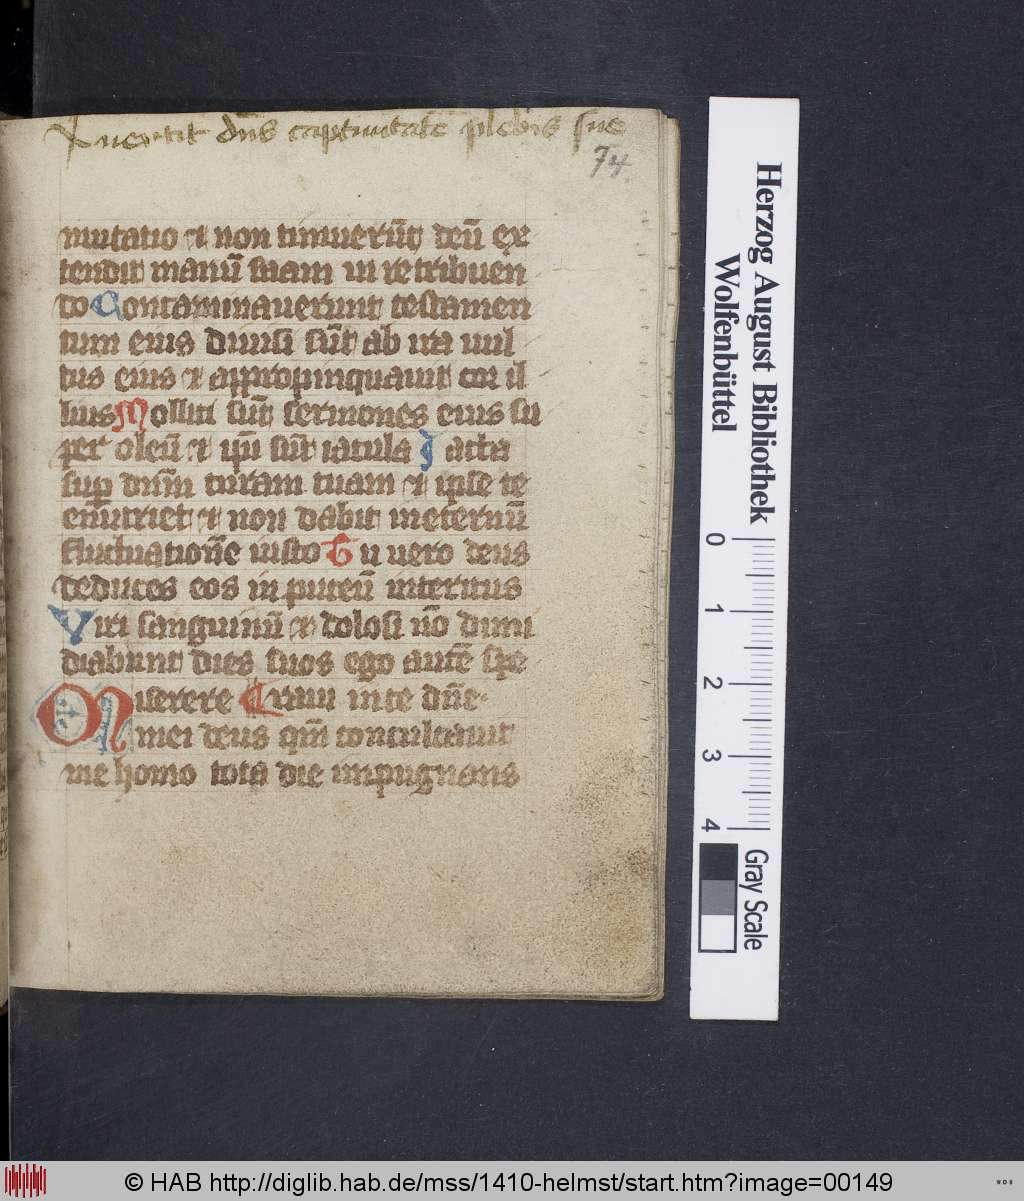 uertit dn̄s captiuitatē plebis sue
74
mutatio et non timuerūt deū ex
tendit manū suam in retribuen
do Contaminauerunt testamen
tum eius Diuisi sūt ab ira uul
tus eius et appropinquauit cor il
lius Molliti sūt sermones eius su
per oleū et ip̄i sūt iacula Iacta
sup dn̄m curam tuam et ipse te
enutriet et non dabit ineternū
fluctuationē iusto Tu vero deus
deduces eos in puteū interitus
Viri sanguinū et dolosi nō dimi
diabunt dies suos ego autē spe
Miserere rabo inte dn̄e
mei deus qm̄ conculcauit
me homo tota die impugnans
Herzog August Bibliothek
Wolfenbüttel
0 1 2 3 4
Gray Scale
© HAB http://diglib.hab.de/mss/1410-helmst/start.htm?image=00149